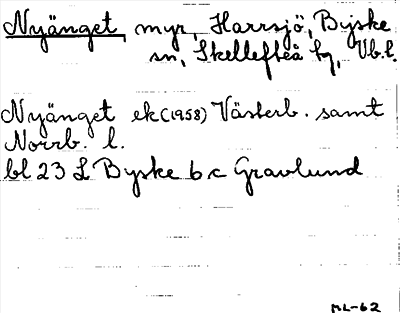 Nyänget, myr, Harrsjö, Byske
sn, Skellefteå tg, Vb.l.
Nyänget ek (1958) Västerb. samt
Norrb. l.
bl 23 L Byske 6 c Gravlund
ML-62